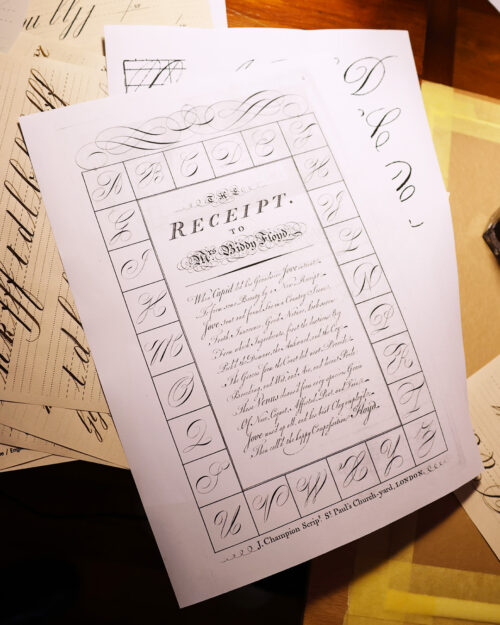 A B C D E F
THE
RECEIPT.
TO
Mrs Biddy Floyd.
When Cupid did his Grandsire Jove intreat
To form some Beauty by a New Receipt,
Jove sent and found far in a Country Scene
Truth, Innocence, Good Nature, Look serene
From which Ingredients, first the dext'rous Boy
Pick'd the Demure, the Aukward, and the Coy
The Graces from the Court did next provide
Breeding, and Wit, and Air, and decent Pride
These Venus cleans'd from every spurious Grain
Of Nice, Coquet, Affected, Pert, and Vain
Jove mix'd up all, and his best Clay employ'd
Then call'd the happy Composition Floyd.
G
I
K
M
O
Q
S
U V W X Y Z
J. Champion Script. St. Paul's Church-yard, LONDON.
D